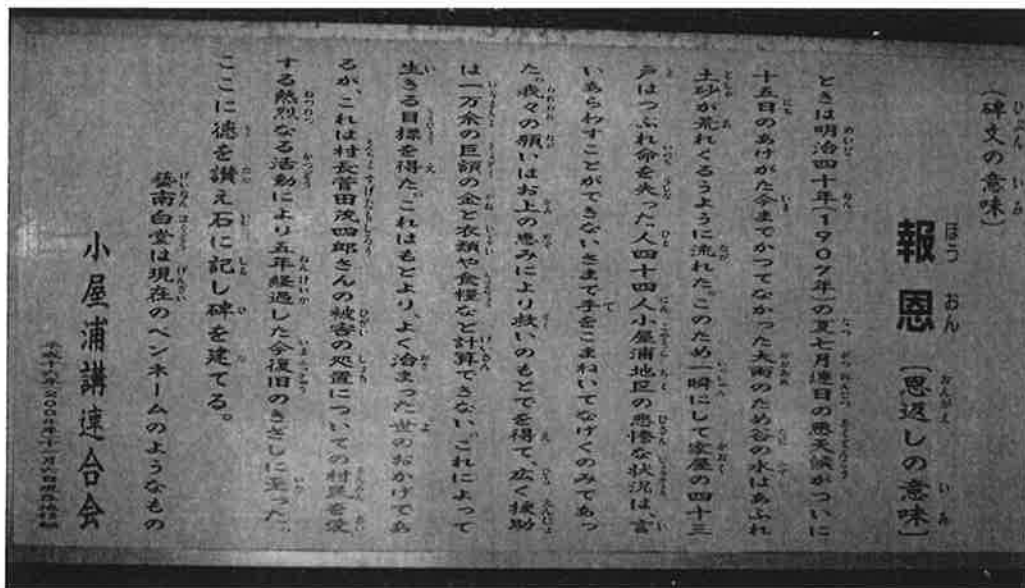 (碑文の意味)
報恩 [恩返しの意味]
ときは明治四十年(1907年)の夏七月連日の悪天候がついに
十五日のあけがた今までかつてなかった大雨のため谷の水はあふれ
土砂が荒れくるうように流れた。このため一瞬にして家屋の四十三
戸はつぶれ命を失った。人四十四人小屋浦地区の悲惨な状況は、言
いあらわすことができないさまで手をこまねいてなげくのみであっ
た。我々の願いはお上の恵みにより救いのもとでを得て、広く援助
は一万余の巨額の金と衣類や食糧など計算できない。これによって
生きる目標を得た。これはもとより、よく治まった世のおかげであ
るが、これは村長菅田茂四郎さんの被害の処置についての村民を愛
する熱烈なる活動により五年経過した今復旧のきざしに至った。
ここに徳を讃え石に記し碑を建てる。
藝南白堂は現在のペンネームのようなもの
小屋浦講連合会